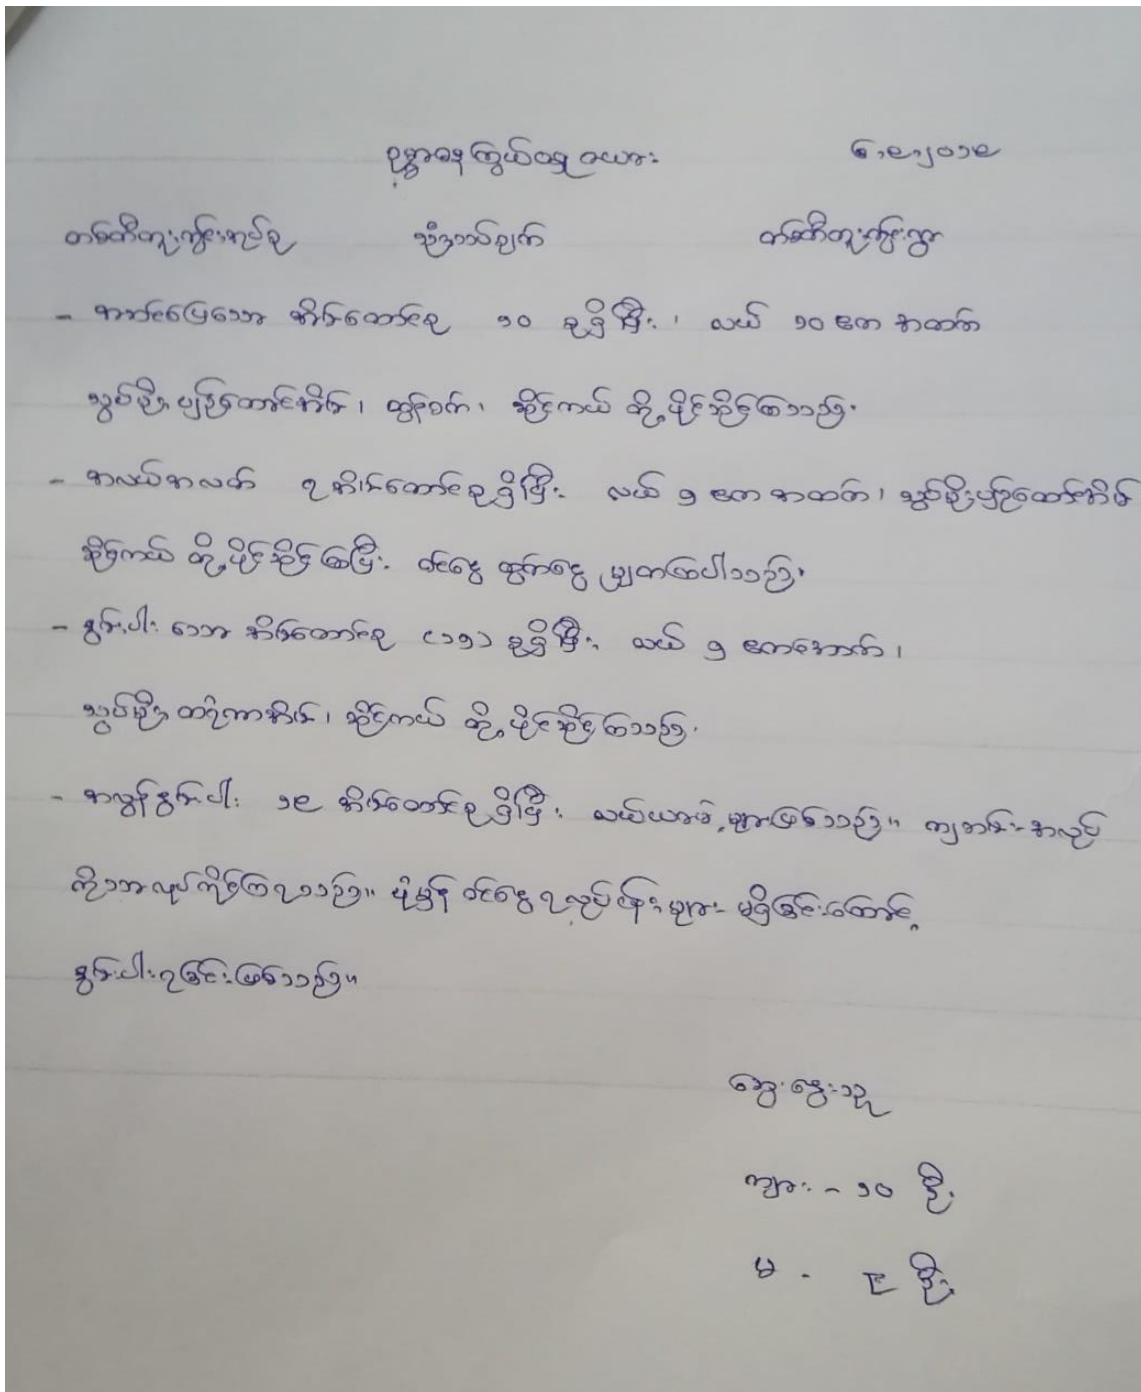 ဥစ္စာဓနကြွယ်ဝမှု ဇယား ၆.၉.၂၀၁၉
တစ်တီတူးကွင်းအုပ်စု သုံးသပ်ချက် တစ်တီတူးကွင်းရွာ
- အဆင်ပြေသော အိမ်ထောင်စု ၁၀ စုရှိပြီး၊ လယ် ၁၀ ဧက အထက်
သွပ်မိုး ပျဉ်ထောင်အိမ်၊ ထွန်စက်၊ ဆိုင်ကယ် တို့ပိုင်ဆိုင်ကြသည်။
- အလယ်အလတ် ၇ အိမ်ထောင်စုရှိပြီး လယ် ၅ ဧက အထက်၊ သွပ်မိုးပျဉ်ထောင်အိမ်
ဆိုင်ကယ် တို့ပိုင်ဆိုင်ကြပြီး ဝင်ငွေ ထွက်ငွေ မျှတကြပါသည်။
- နွမ်းပါး သော အိမ်ထောင်စု (၁၅) စုရှိပြီး လယ် ၅ ဧကအောက်၊
သွပ်မိုး ထရံကာအိမ်၊ ဆိုင်ကယ် တို့ပိုင်ဆိုင်ကြသည်။
- အလွန်နွမ်းပါး ၁၉ အိမ်ထောင်စုရှိပြီး လယ်ယာမဲ့များဖြစ်သည်။ ကျဘမ်းအလုပ်
ကိုသာလုပ်ကိုင်ကြရသည်။ ပုံမှန် ဝင်ငွေရလုပ်ငန်းများ မရှိခြင်းကြောင့်
နွမ်းပါးရခြင်းဖြစ်သည်။
ဆွေးနွေးသူ
ကျား - ၁၀ ဦး
မ - ၉ ဦး